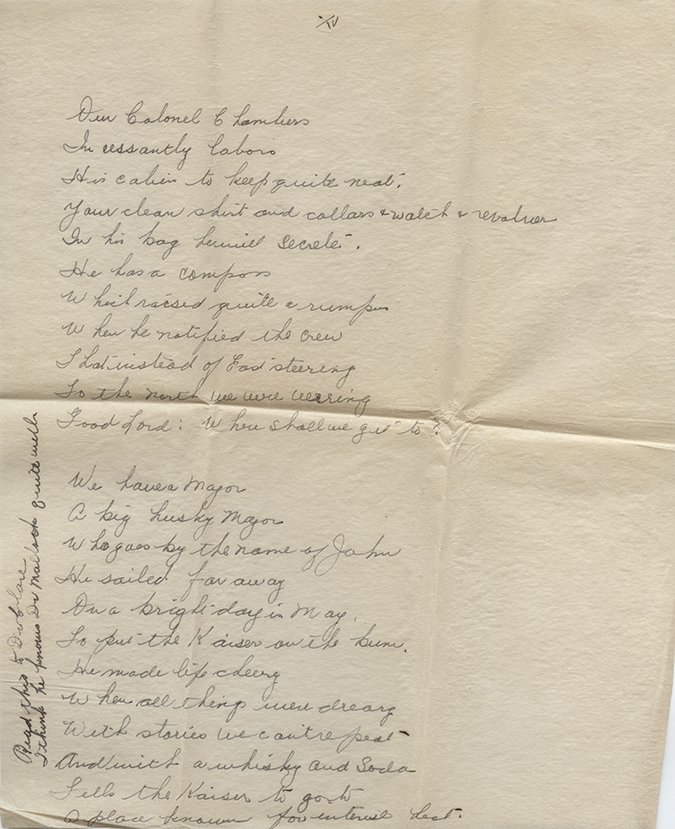 IV
Our Colonel Chambers
Incessantly labors
His cabin to keep quite neat.
Your clean shirt and collars & watch & revolver
In his bag he will secrete.
He has a compass
Which raised quite a rumpus
When he notified the crew
That instead of East steering
To the north we were veering
Good Lord: Where shall we get to?
We have a Major
A big husky Major
Who goes by the name of John
He sailed far away
On a bright day in May.
To put the Kaiser on the bum.
He made life cheery
When all things were dreary
With stories we cant repeat
And with a whisky and Soda
Tells the Kaiser to go to
A place known for intense heat.
Read this to Dr
I think he knows Dr Malloch quite well